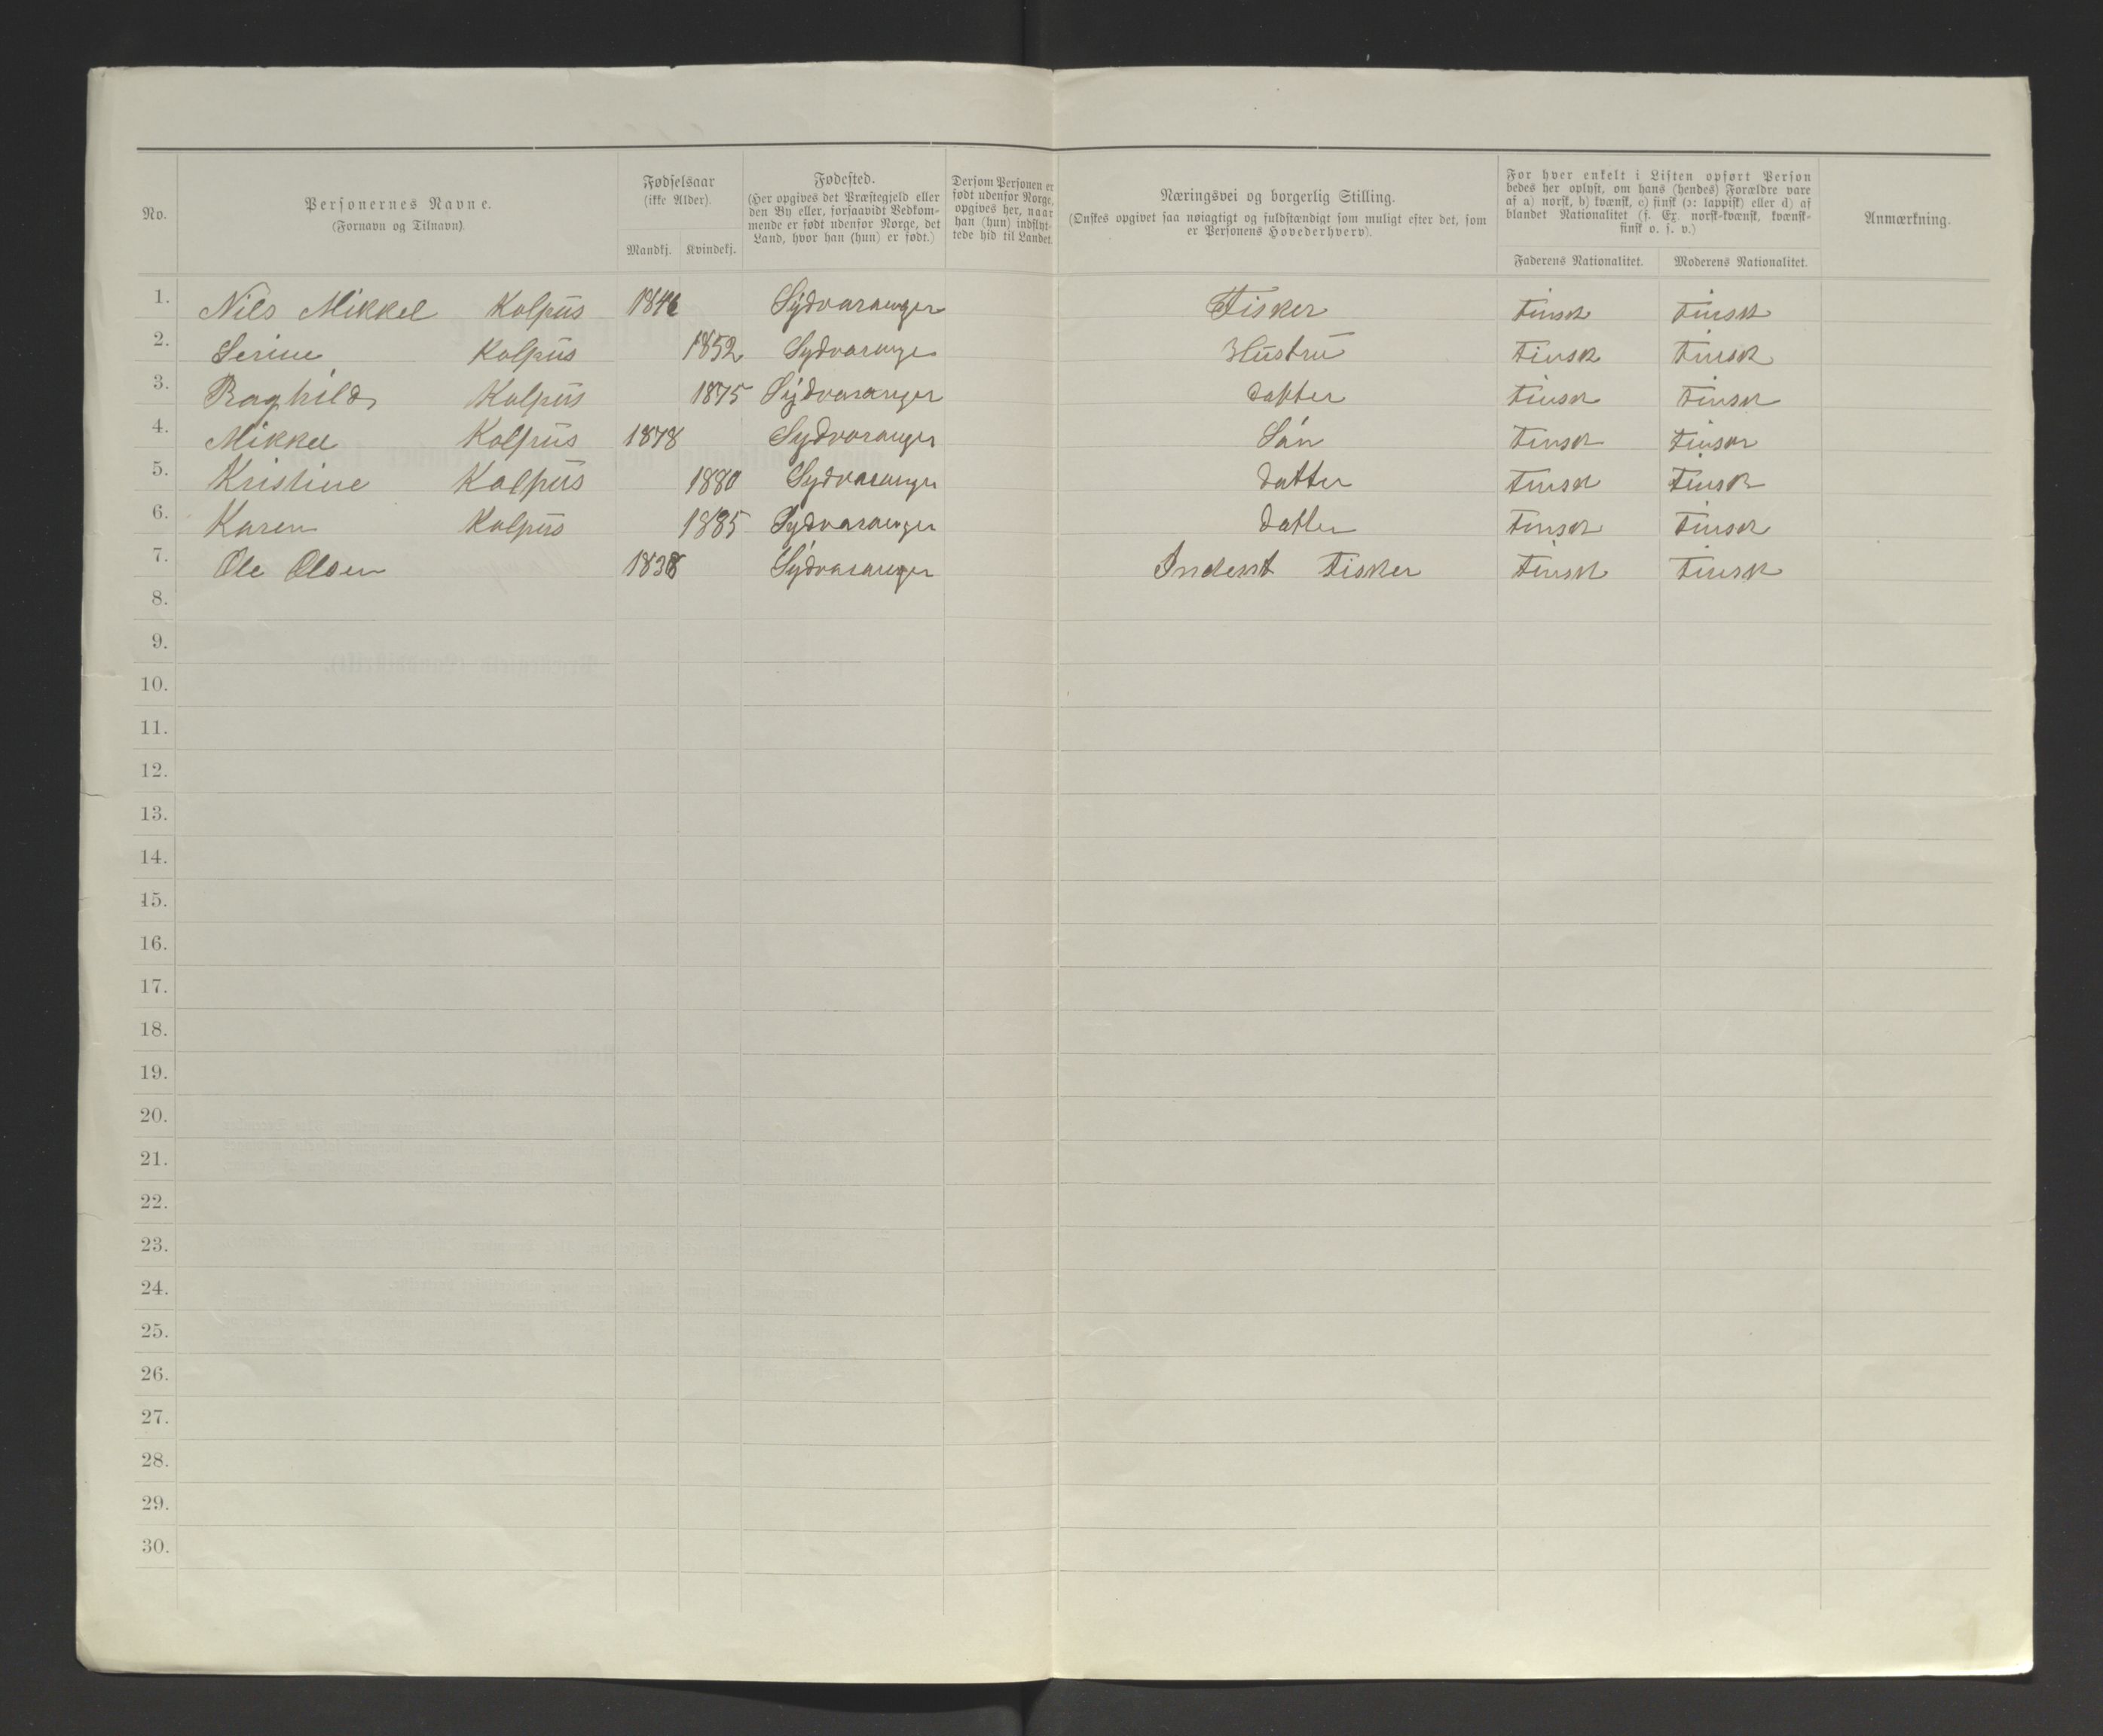 No.
Personernes Navne.
(Fornavn og Tilnavn).
Fødselsaar
(ikke Alder).
Mandkj. Kvindekj.
Fødested.
(Her opgives det Præstegjeld eller
den By eller, forsaavidt Vedkom-
mende er født udenfor Norge, det
Land, hvor han (hun) er født.)
Dersom Personen er
født udenfor Norge,
opgives her, naar
han (hun) indflyt-
tede hid til Landet.
Næringsvei og borgerlig Stilling.
(Ønskes opgivet saa nøiagtigt og fuldstændigt som muligt efter det, som
er Personens Hovederhverv).
For hver enkelt i Listen opført Person
bedes her oplyst, om hans (hendes) Forældre vare
af a) norsk, b) kvænsk, c) finsk (ɔ: lappisk) eller d) af
blandet Nationalitet (f. Ex. norsk-kvænsk, kvænsk-
finsk o. s. v.)
Faderens Nationalitet. Moderens Nationalitet.
Anmærkning.
1. Nils Mikkel Kalpus 1846 Sydvaranger Fisker Finsk Finsk
2. Serine Kalpus 1852 Sydvarange Hustru Finsk Finsk
3. Raghild Kalpus 1875 Sydvaranger datter Finsk Finsk
4. Mikkel Kalpus 1878 Sydvaranger Sán Finsk Finsk
5. Kristine Kalpus 1880 Sydvaranger datter Finsk Finsk
6. Karen Kalpus 1885 Sydvaranger datter Finsk Finsk
7. Ole Olsen 1838 Sydvaranger Inderst Fisker Finsk Finsk
8.
9.
10.
11.
12.
13.
14.
15.
16.
17.
18.
19.
20.
21.
22.
23.
24.
25.
26.
27.
28.
29.
30.